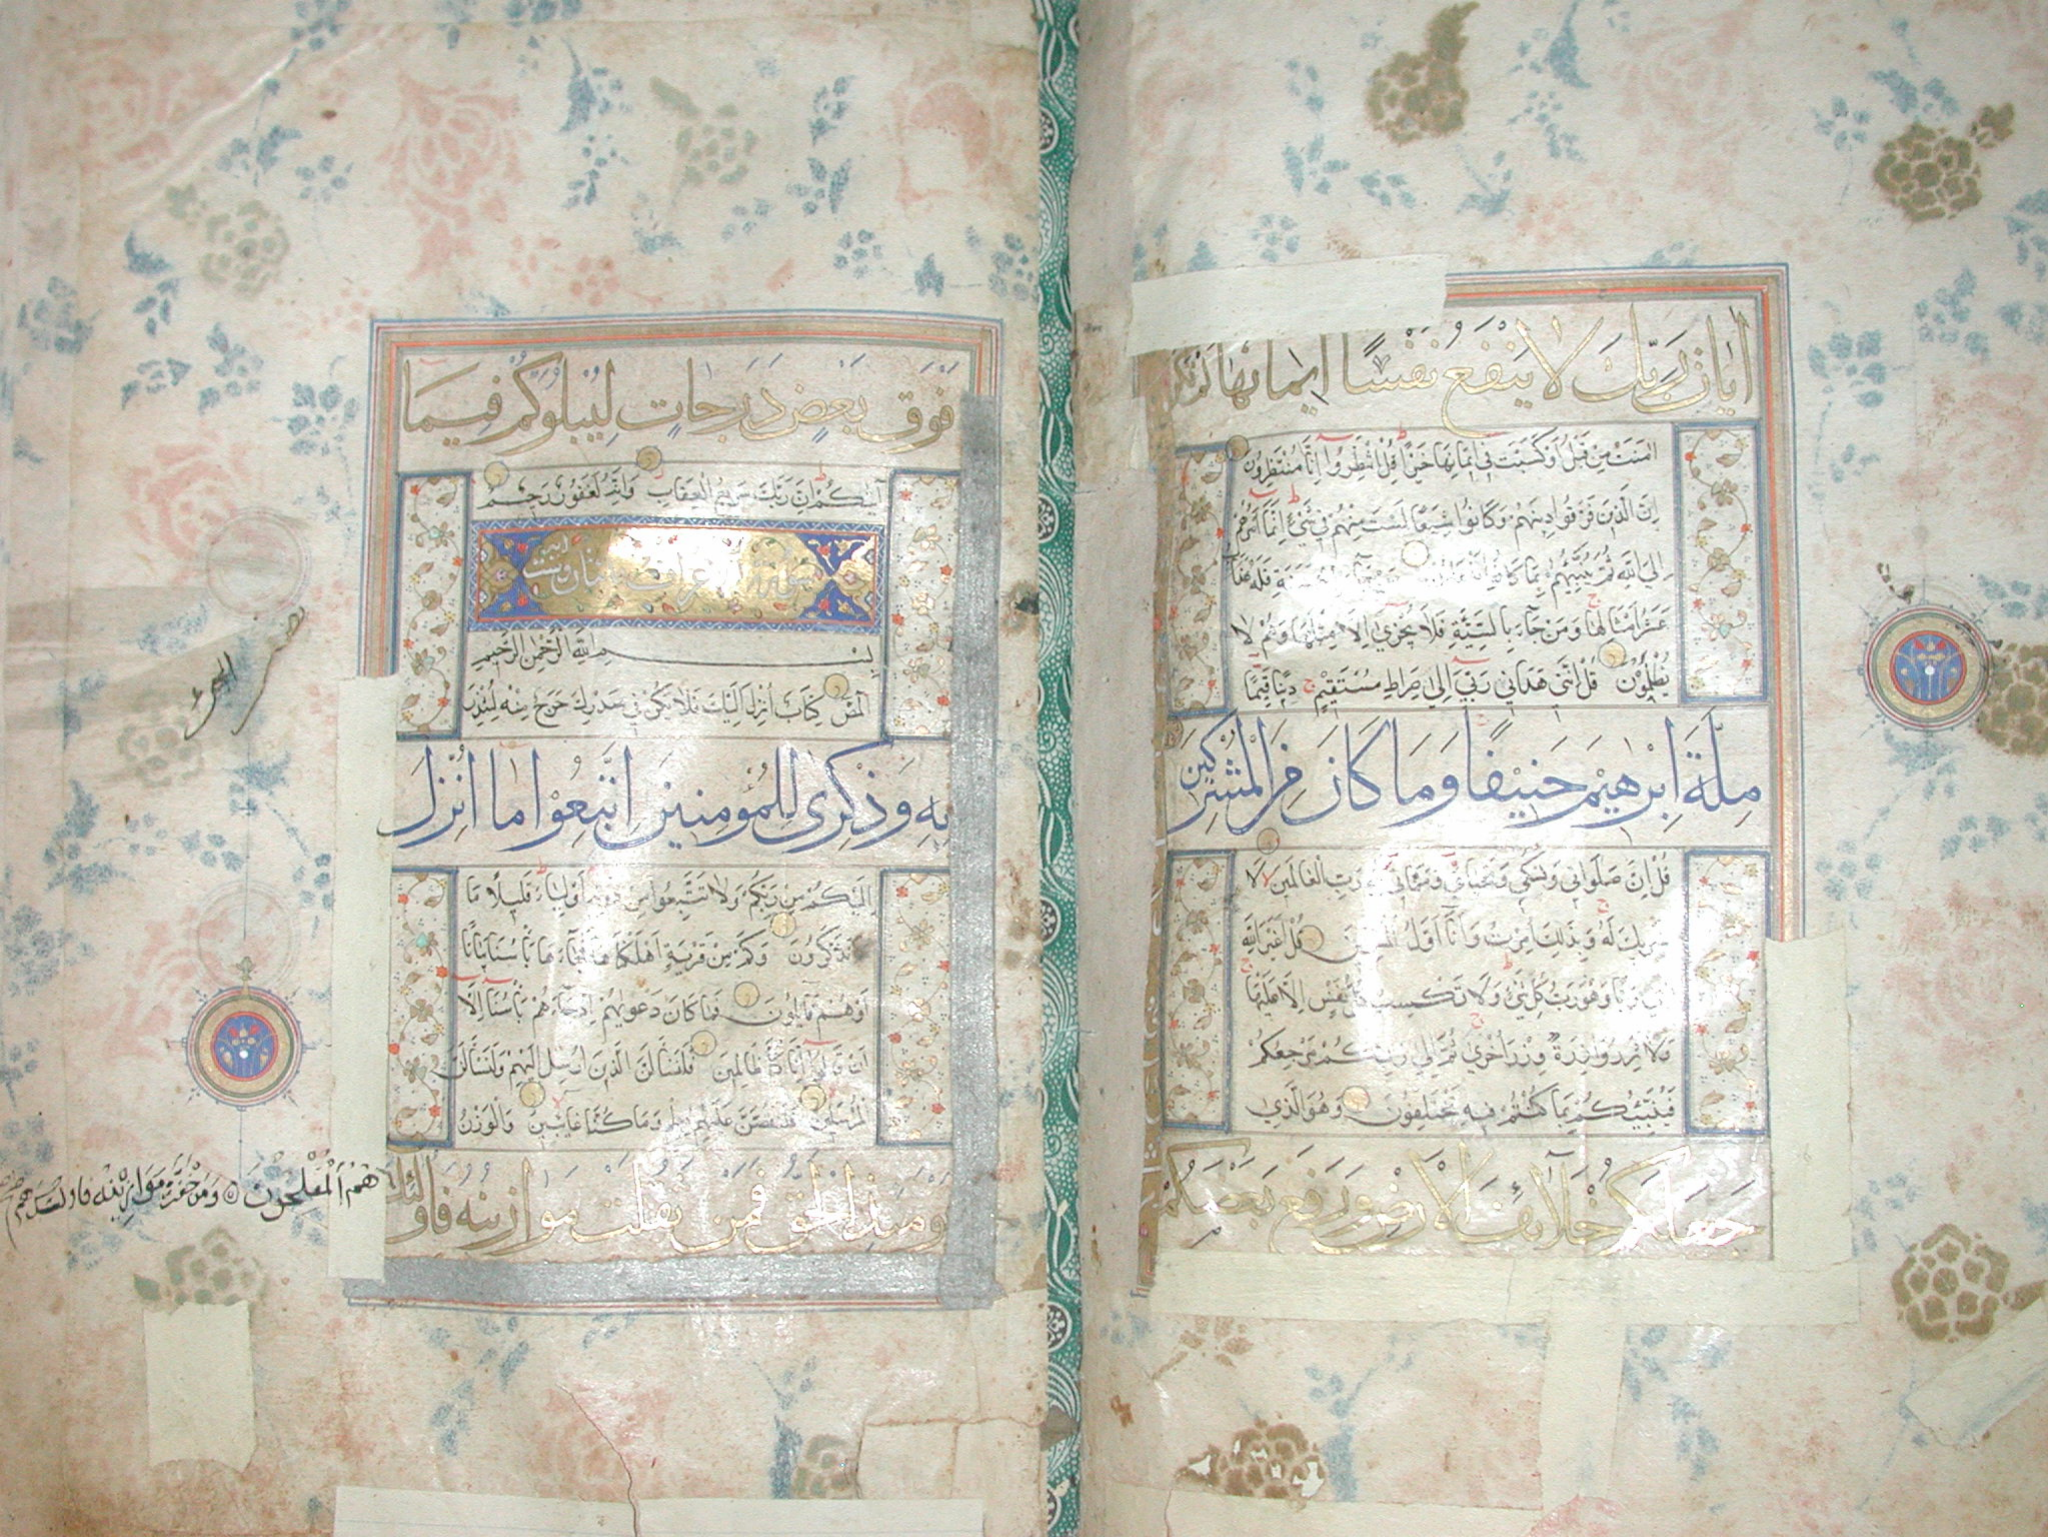 ايات ربك لا ينفع نفسًا ايمانها لم تكن
امنت من قبل اوكسبت في ايمانها خيرًا قل انتظروا انا منتظرون
ان الذين فرقوا دينهم وكانوا شيعًا لست منهم في شيء انما امرهم
الى الله ثم ينبئهم بما كانوا فله
عشر امثالها ومن جاء بالسيئة فلا يجزى الا مثلها وهم لا
يظلمون قل انني هداني ربي الى صراط مستقيم دينًا قيمًا
مِلَّةَ اِبْرٰهيمَ حَنيفًا وَمَا كَانَ مِنَ الْمُشْرِكينَ
قل ان صلواتي ونسكي ومحياي ومماتي لله رب العالمين لا
شريك له وبذلك امرت وانا اول المسلمين قل اغير الله
ابغي ربا وهو رب كل شيء ولا تكسب كل نفس الا عليها
ولا تزر وازرة وزر اخرى ثم الى ربكم مرجعكم
فينبئكم بما كنتم فيه تختلفون وهو الذي
جعلكم خلائف الارض ورفع بعضكم
فوق بعض درجات ليبلوكم فيما
آتيكم ان ربك سريع العقاب وانه لغفور رحيم
سورة الاعراف مائتان وست
بسم الله الرحمن الرحيم
المص كتاب انزل اليك فلا يكن في صدرك حرج منه لتنذر
به وذكرى للمؤمنين اتبعوا ما انزل
اليكم من ربكم ولا تتبعوا من دونه اولياء قليلًا ما
تذكرون وكم من قرية اهلكناها فجاءها باسنا بياتًا
اوهم قائلون فما كان دعويهم اذ جاءهم باسنا الا
ان قالوا انا كنا ظالمين فلنسألن الذين ارسل اليهم ولنسألن
المرسلين فلنقصن عليهم بعلم وما كنا غائبين والوزن
يومئذ الحق فمن ثقلت موازينه فاولئك
هم المفلحون ومن خفت موازينه فاولئك